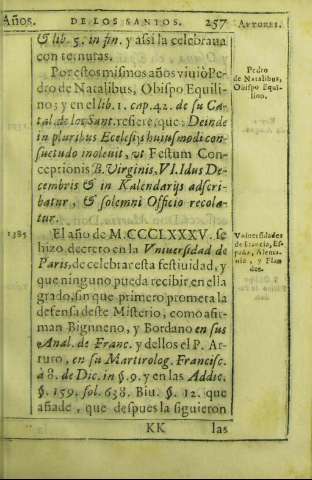 Años. DE LOS SANTOS. 257 AVTORES.
& lib. 5. in fin. y assi la celebraua
con ternuras.
Por estos mismos años viuiò Pe-
dro de Natalibus, Obispo Equili-
no; y en el lib. 1. cap. 42. de su Ca-
tal. de los Sant. refiere, que: Deinde
in pluribus Ecclesijs huiusmodi con-
suetudo inoleuit, ut Festum Con-
ceptionis B. Virginis, VI. Idus De-
cembris & in Kalendarijs adscri-
batur, & solemni Officio recola-
tur.
Pedro
de Natalibus,
Obispo Equi-
lino.
1385
El año de M.CCCLXXXV. se
hizo decreto en la Vniuersidad de
Paris, de celebrar esta festiuidad, y
que ninguno pueda recibir en ella
grado, sin que primero prometa la
defensa deste Misterio, como afir-
man Bignneno, y Bordano en sus
Anal. de Franc. y dellos el P. Ar-
turo, en su Martirolog. Francisc.
à 8. de Dic. in §. 9. y en las Addic.
§. 159. fol. 638. Biu. §. 12. que
añade, que despues la siguieron
Vniuersidades
de Francia, Es-
paña, Alema-
nia, y Flan
des.
KK las